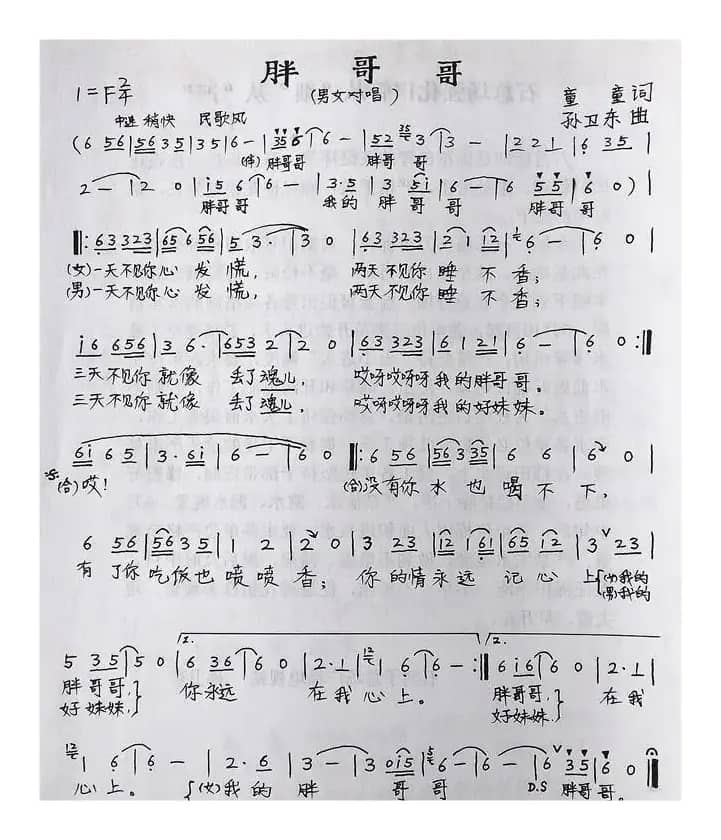 胖哥哥
1=F 2/4
(男女对唱)
童童词
孙卫东曲
中速 稍快 民歌风
(6 56|563 5|35|6-|35 6|6-|52 3|3-|22 1|6 35|
(伴)胖哥哥 胖哥哥
2-|2 0|i5 6|6-|3·5|3 5i|6-|6 5 5|6 0)|
胖哥哥 我的胖哥哥 胖哥哥
‖:63 323|65 56|5 3·|3 0|63 323|2 1 12|6-|6 0|
(女)一天不见你心发慌, 两天不见你睡不香;
(男)一天不见你心发慌, 两天不见你睡不香;
i6 656|3 6·|653 2|2 0|63 323|6 121|6-|6 0:‖
三天不见你就像丢了魂儿, 哎呀哎呀呀我的胖哥哥。
三天不见你就像丢了魂儿, 哎呀哎呀呀我的好妹妹。
6i 6 5|3·6i|6-|6 0|‖:6 56|56 335|6 6|6 0|
(合)哎! (合)没有你水也喝不下,
6 56|56 3 5|1 2|2 0|3 23|12 161|65 12|3 23|
有了你吃饭也喷喷香; 你的情永远记心上{(女)我的
(男)我的
5 35|5 0|6 36|6 0|2·1|1 6|6-:‖6 i6|6 0|2·1|
1.
2.
胖哥哥,} 你永远在我心上。 胖哥哥,} 在我
好妹妹,} 好妹妹,}
1 6|6-|2·6|3-|3 0i5|6-|6-|6 35|6 0‖
心上。 {(女)我的胖哥哥 D.S 胖哥哥。